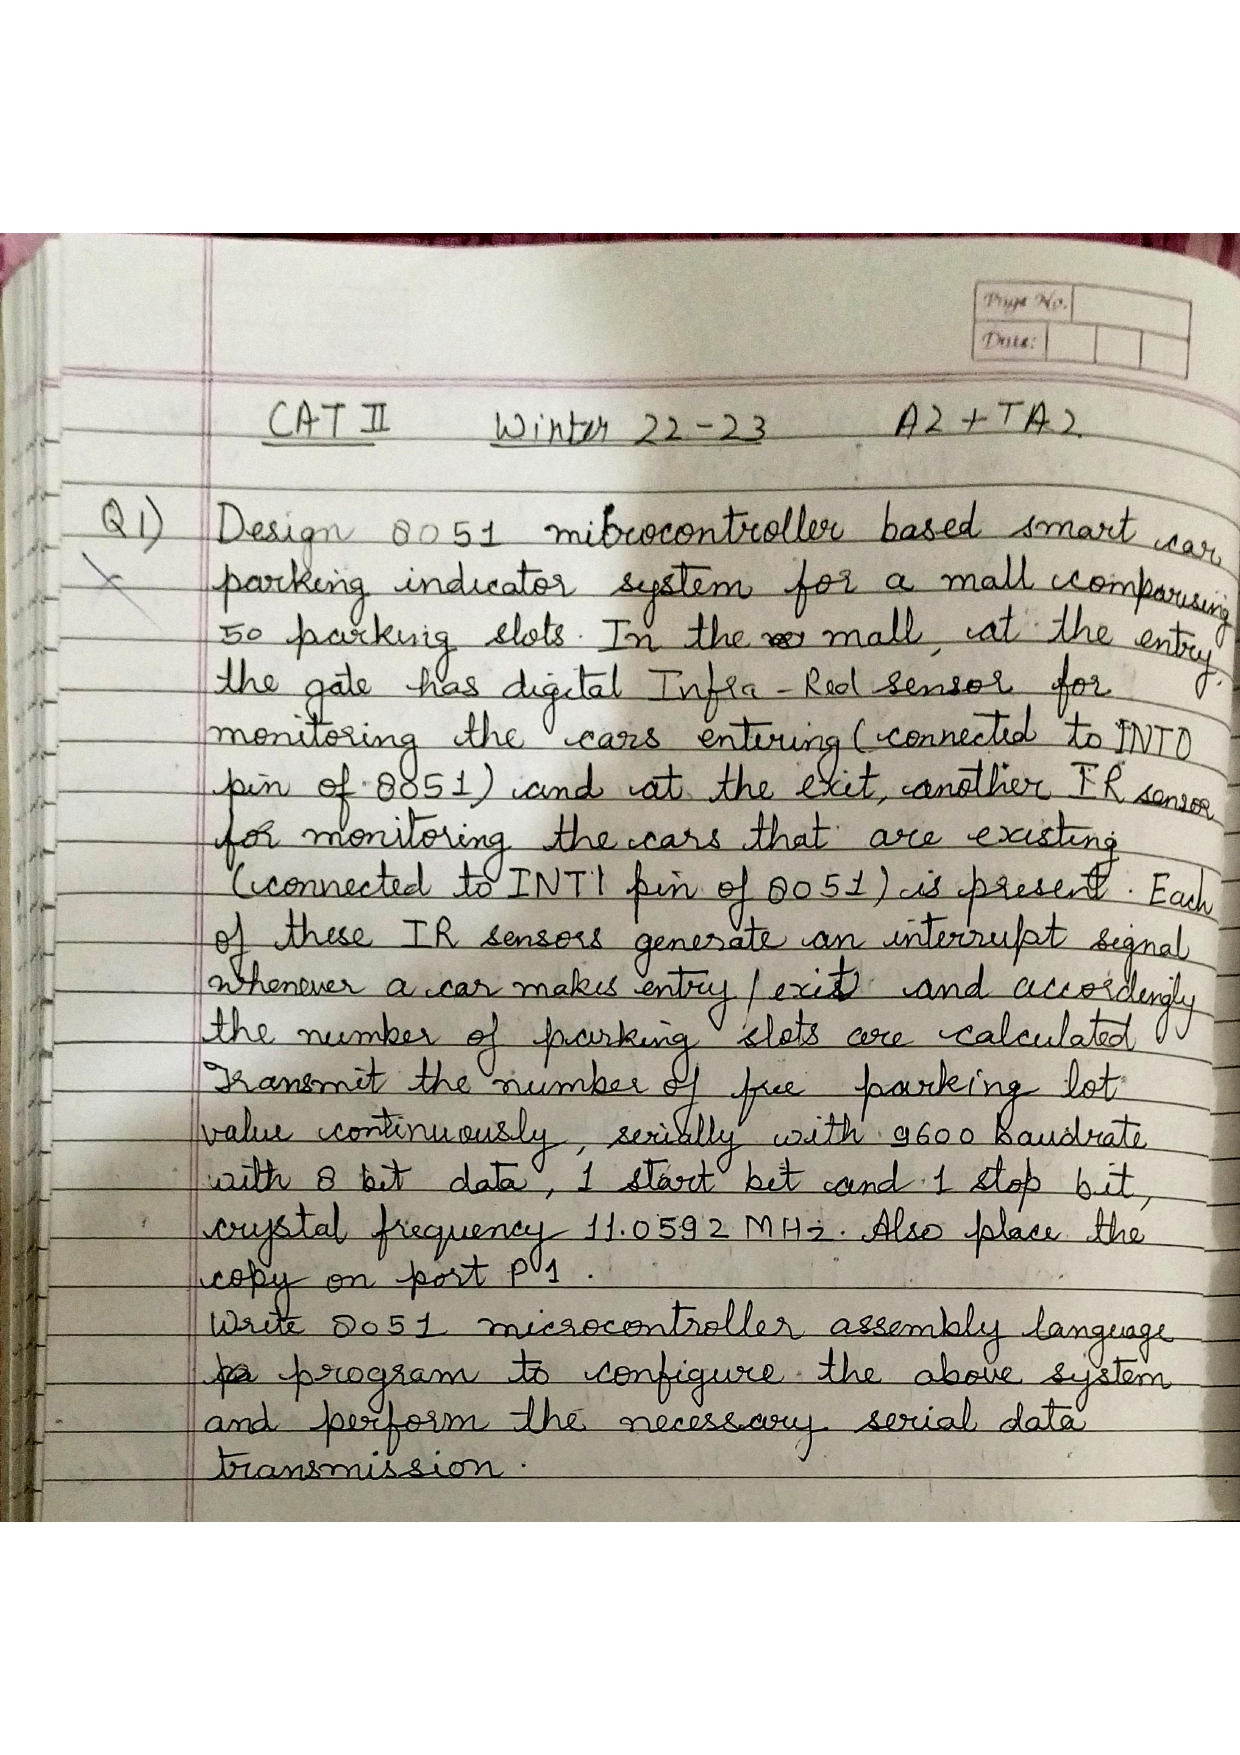 Page No.
Date:
CAT II Winter 22-23 A2 + TA2
Q1) Design 8051 microcontroller based smart car
parking indicator system for a mall comparising
50 parking slots. In the mall, at the entry,
the gate has digital Infra-Red sensor for
monitoring the cars entering (connected to INT0
pin of 8051) and at the exit, another IR sensor
for monitoring the cars that are existing
(connected to INT1 pin of 8051) is present. Each
of these IR sensors generate an interrupt signal
whenever a car makes entry/exit and accordingly
the number of parking slots are calculated
Transmit the number of free parking lot
value continuously, serially with 9600 baudrate
with 8 bit data, 1 start bit and 1 stop bit,
crystal frequency 11.0592 MHz. Also place the
copy on port P1.
Write 8051 microcontroller assembly language
program to configure the above system
and perform the necessary serial data
transmission.